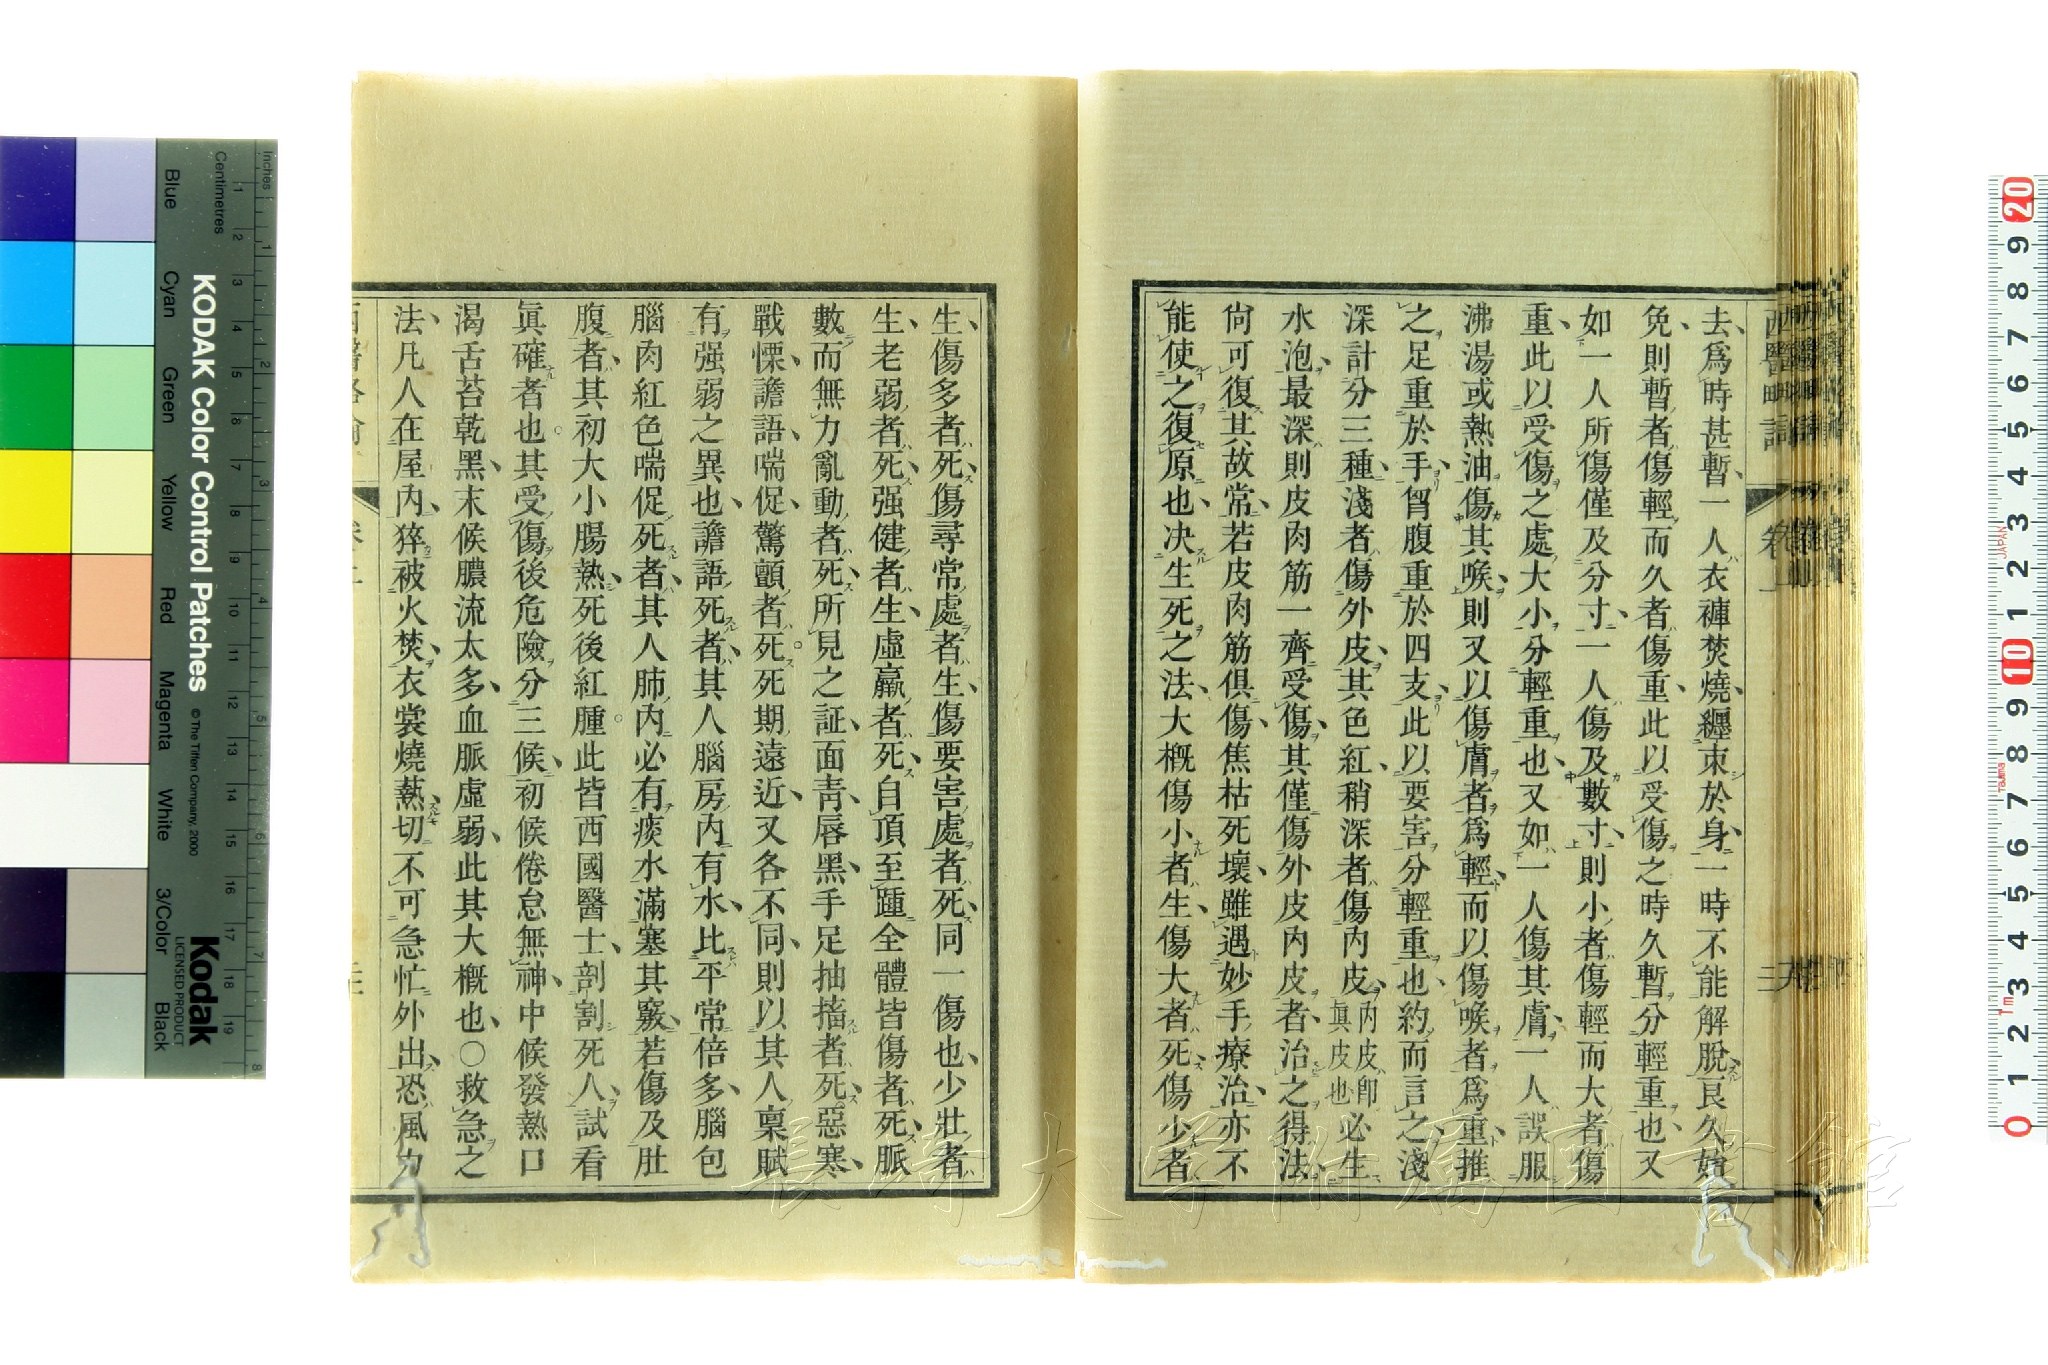 去爲時甚暫一人衣褲焚燒纒束於身一時不能解脫良久始
免則暫者傷輕而久者傷重此以受傷之時久暫分輕重也又
如一人所傷僅及分寸一人傷及數寸則小者傷輕而大者傷
重此以受傷之處大小分輕重也又如一人傷其膚一人誤服
沸湯或熱油傷其喉則又以傷膚者爲輕而以傷喉者爲重推
之足重於手胷腹重於四支此以要害分輕重也約而言之淺
深計分三種淺者傷外皮其色紅稍深者傷內皮內皮卽眞皮也必生
水泡最深則皮肉筋一齊受傷其僅傷外皮內皮者治之得法
尙可復其故常若皮肉筋俱傷焦枯死壞雖遇妙手療治亦不
能使之復原也决生死之法大槪傷小者生傷大者死傷少者
生傷多者死傷尋常處者生傷要害處者死同一傷也少壯者
生老弱者死强健者生虛羸者死自頂至踵全體皆傷者死脈
數而無力亂動者死所見之証面靑唇黑手足抽搐者死惡寒
戰慄譫語喘促驚顫者死死期遠近又各不同則以其人稟賦
有强弱之異也譫語死者其人腦房內有水比平常倍多腦包
腦肉紅色喘促死者其人肺內必有痰水滿塞其竅若傷及肚
腹者其初大小腸熱死後紅腫此皆西國醫士剖割死人試看
眞確者也其受傷後危險分三候初候倦怠無神中候發熱口
渴舌苔乾黑末候膿流太多血脈虛弱此其大槪也○救急之
法凡人在屋內猝被火焚衣裳燒熱切不可急忙外出恐風力
KODAK Color Control Patches
© The Tiffen Company, 2000
Kodak
LICENSED PRODUCT
Inches
Centimetres
Blue
Cyan
Green
Yellow
Red
Magenta
White
3/Color
Black
長崎大学附属図書館